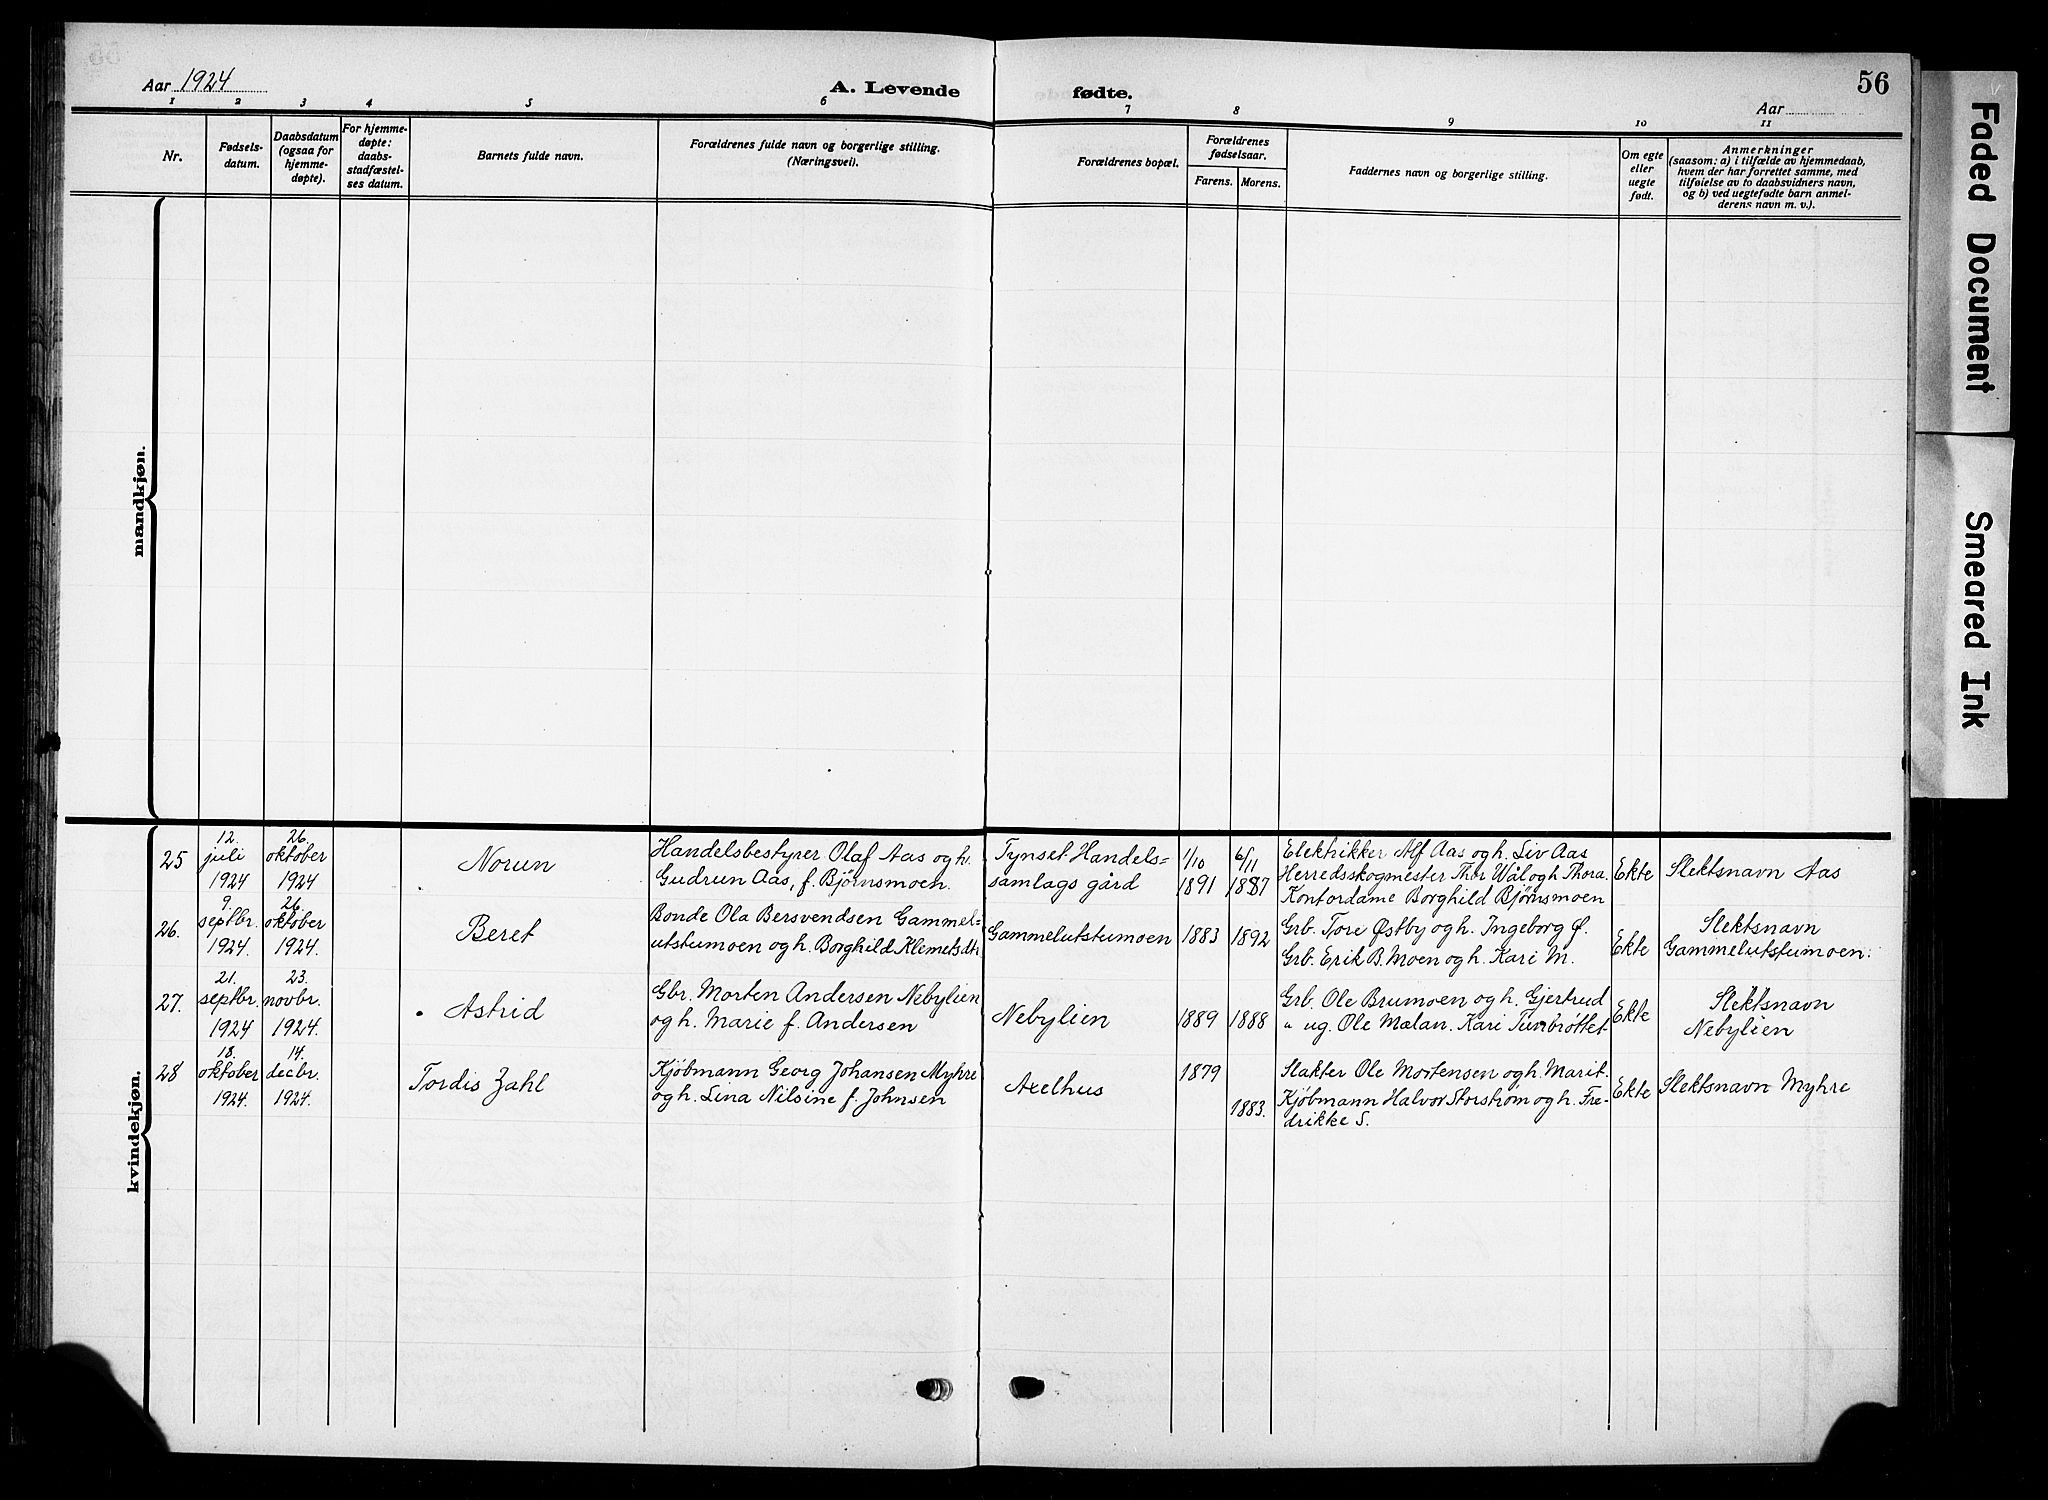 Aar 1924
A. Levende fødte.
Aar
56
1 2 3 4 5 6 7 8 9 10 11
Nr.
Fødsels-
datum.
Daabsdatum
(ogsaa for
hjemme-
døpte).
For hjemme-
døpte:
daabs-
stadfæstel-
ses datum.
Barnets fulde navn.
Forældrenes fulde navn og borgerlige stilling.
(Næringsvei).
Forældrenes bopæl.
Forældrenes
fødselsaar.
Farens. Morens.
Faddernes navn og borgerlige stilling.
Om egte
eller
uegte
født.
Anmerkninger
(saasom: a) i tilfælde av hjemmedaab,
hvem der har forrettet samme, med
tilføielse av to daabsvidners navn,
og b) ved uegtefødte barn anmel-
derens navn m. v.).
mandkjøn.
kvindekjøn.
25
12.
juli
1924
26.
oktober
1924
Norun
Handelsbestyrer Olaf Aas og h.
Gudrun Aas, f. Bjørnsmoen.
Tynset Handels=
samlags gård
1/10
1891
6/11
1887
Elektrikker Alf Aas og h. Liv Aas
Herredsskogmester Thor Wål og h. Thora.
Kontordame Borghild Bjørnsmoen
Ekte
Slektsnavn Aas
26.
9.
septbr.
1924.
26.
oktober
1924.
Beret
Bonde Ola Bersvendsen Gammel=
utstumoen og h. Borghild Klemetsdtr.
Gammelutstumoen
1883
1892
Grb. Tore Østby og h. Ingeborg Ø.
Grb. Erik B. Moen og h. Kari M.
Ekte
Slektsnavn
Gammelutstumoen.
27.
21.
septbr.
1924
23.
novbr.
1924.
Astrid
Gbr. Morten Andersen Nebylien
og h. Marie f. Andersen
Nebylien
1889
1888
Grb. Ole Brumoen og h. Gjertrud
" ug. Ole Mælan. Kari Tunbrøttet.
Ekte
Slektsnavn
Nebylien
28
18.
oktober
1924.
14.
decbr.
1924.
Tordis Zahl
Kjøbmann Georg Johansen Myhre
og h. Lina Nilsine f. Johnsen
Axelhus
1879
1883.
Slakter Ole Mortensen og h. Marit.
Kjøbmann Halvor Storstrøm og h. Fre-
drikke S.
Ekte
Slektsnavn Myhre
Faded Document
Smeared Ink